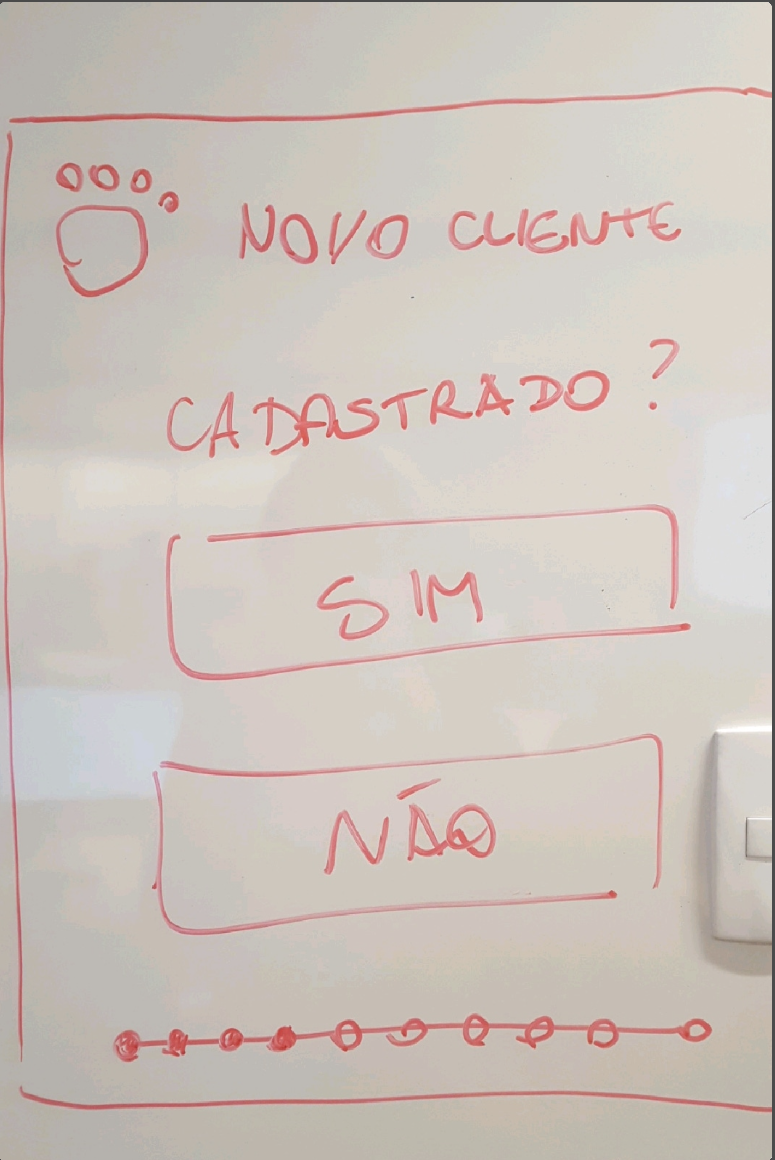 NOVO CLIENTE
CADASTRADO?
SIM
NÃO